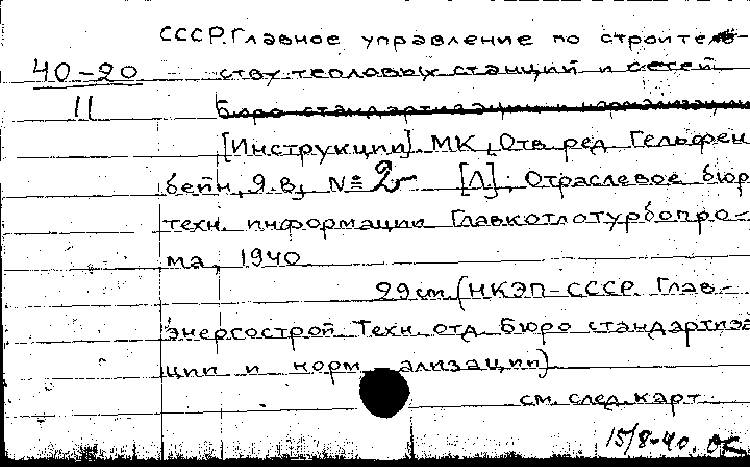 СССР. Главное управление по строитель-
40-20
ству тепловых станций и сетей
II
бюро стандартизации и нормализации
[Инструкции] МК, Отв. ред. Гельфен
бейн, Я.В., № 2 [Л]; Отраслевое бюр
техн. информации Главкотлотурбопро-
ма, 1940
29 см. (НКЭП-СССР. Глав-
энергострой. Техн. отд. Бюро стандартиза
ции и норм ализации)
см. след. карт.
15/8-40.